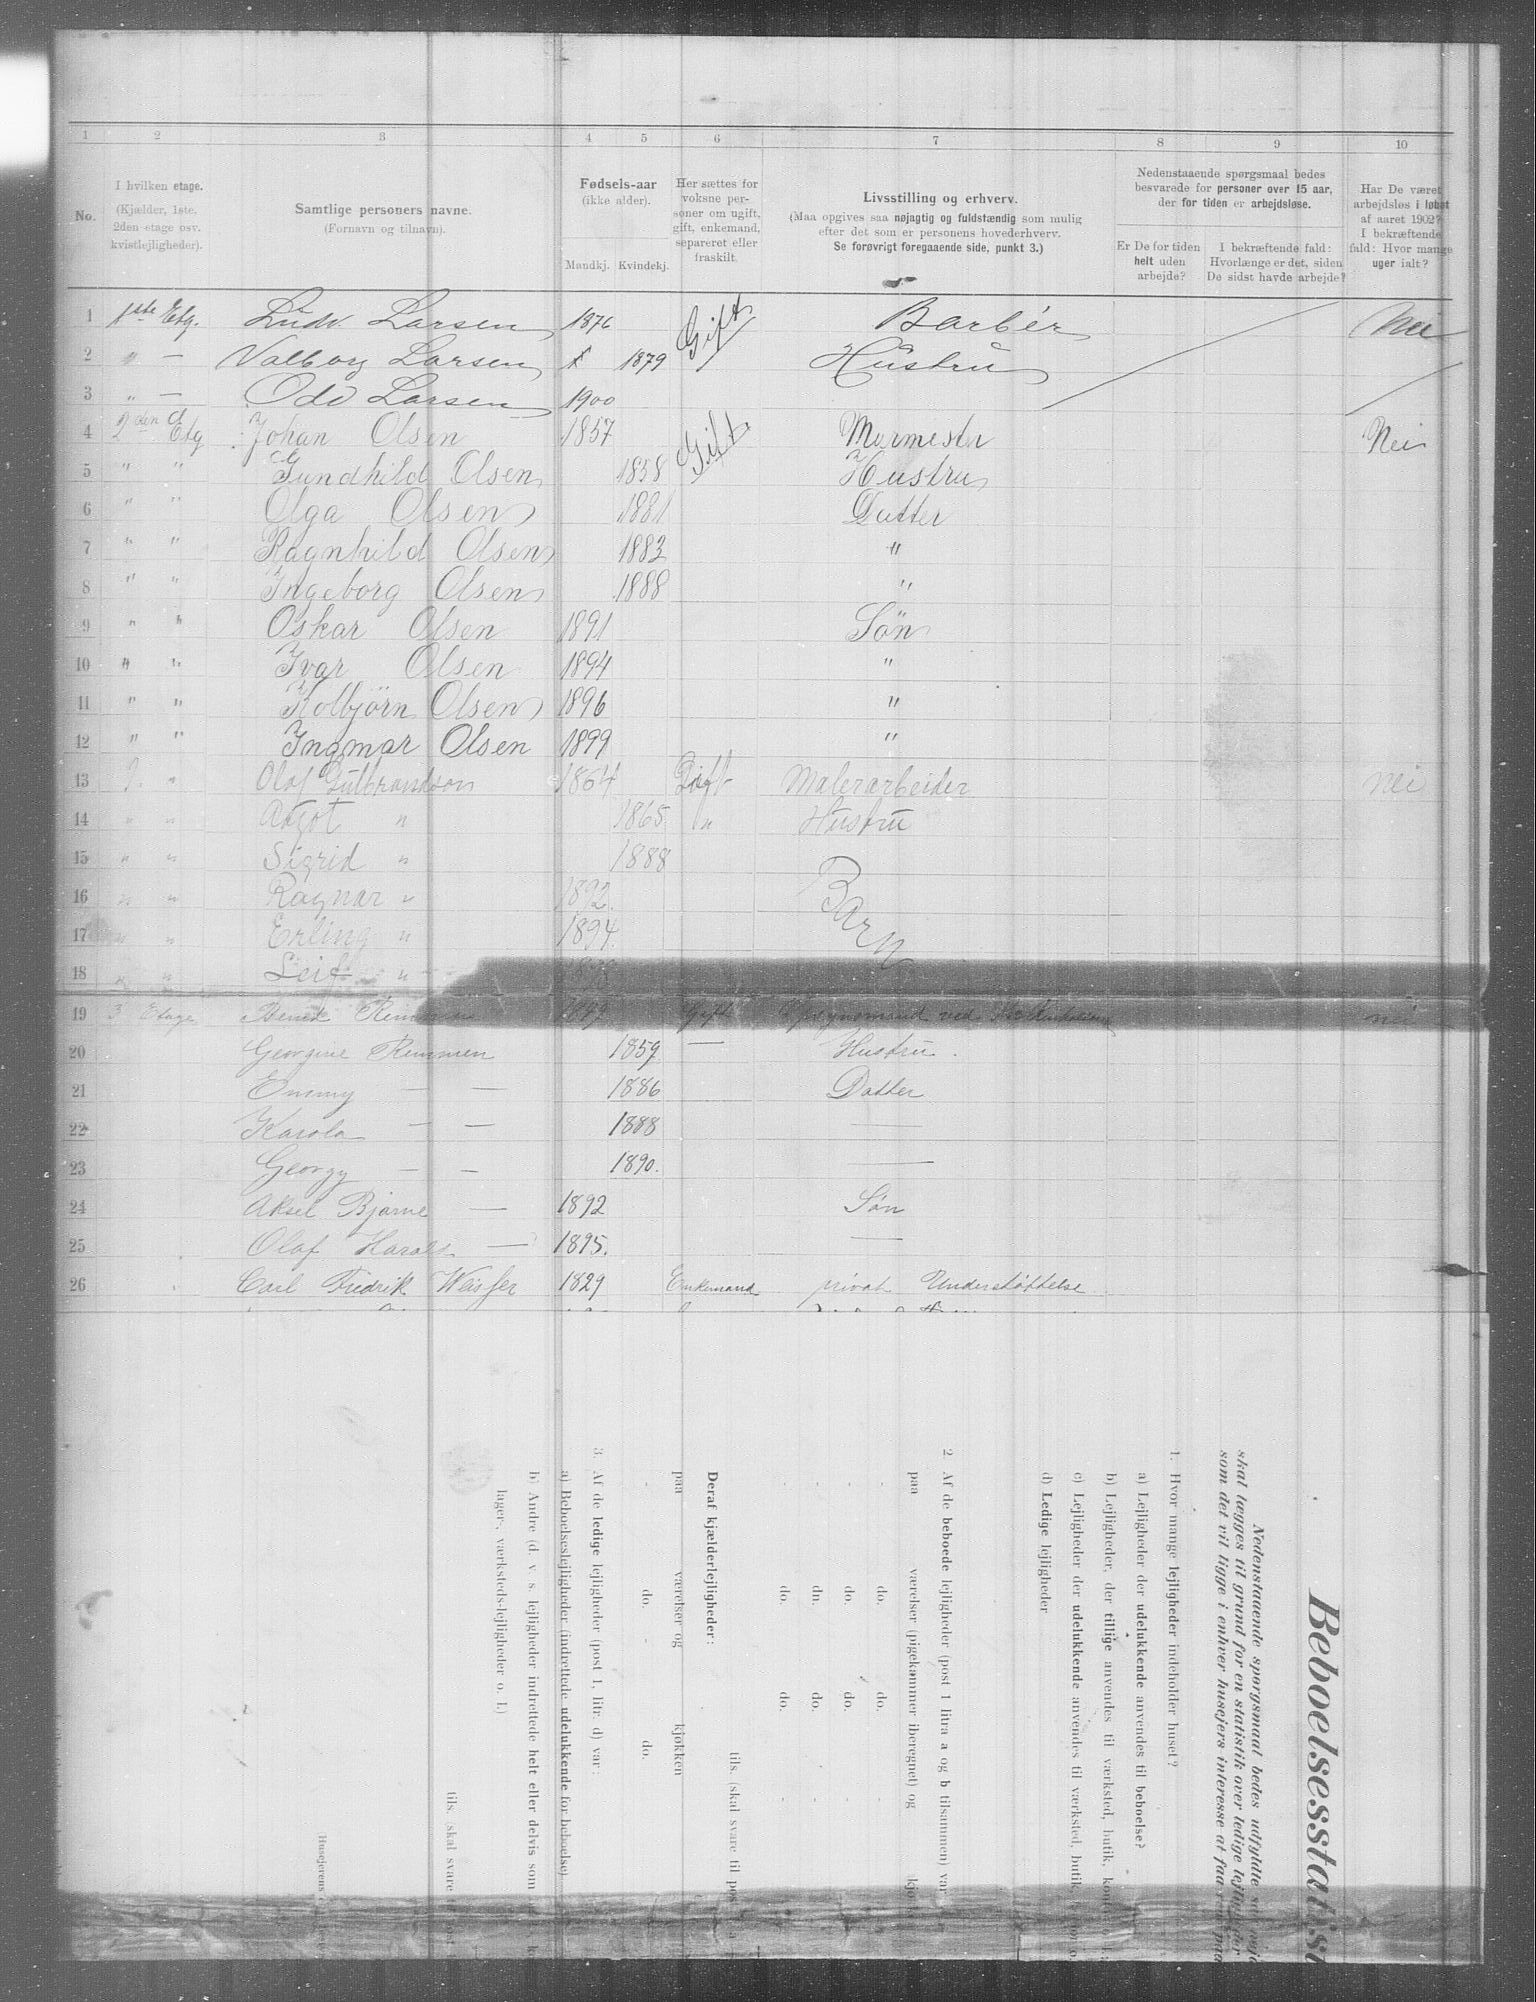 1 2 3 4 5 6 7 8 9 10
No.
I hvilken etage.
(Kjælder, 1ste.
2den etage osv.
kvistlejligheder).
Samtlige personers navne.
(Fornavn og tilnavn).
Fødsels-aar
(ikke alder).
Mandkj. Kvindekj.
Her sættes for
voksne per-
soner om ugift,
gift, enkemand,
separeret eller
fraskilt.
Livsstilling og erhverv.
(Maa opgives saa nøjagtig og fuldstændig som mulig
efter det som er personens hovederhverv.
Se forøvrigt foregaaende side, punkt 3.)
Nedenstaaende spørgsmaal bedes
besvarede for personer over 15 aar,
der for tiden er arbejdsløse.
Er De for tiden
helt uden
arbejde?
I bekræftende fald:
Hvorlænge er det, siden
De sidst havde arbejde?
Har De været
arbejdsløs i løbet
af aaret 1902?
I bekræftende
fald: Hvor mange
uger ialt?
1 1ste Etg. Ludv. Larsen 1876 Gift Barbér Nei
2 " — Valborg Larsen 1879 Hustru
3 " — Odd Larsen 1900
4 2den Etg Johan Olsen 1857 Gift Murmester Nei
5 " " Gundhild Olsen 1858 Hustru
6 " " Olga Olsen 1881 Datter
7 " " Ragnhild Olsen 1883 "
8 " " Ingeborg Olsen 1888 "
9 " " Oskar Olsen 1891 Søn
10 " " Ivar Olsen 1894 "
11 " " Kolbjörn Olsen 1896 "
12 " " Ingmar Olsen 1899 "
13 " Olaf Gulbrandson 1864 Gift Malerarbeider Nei
14 " " Aagot " 1865 " Hustru
15 " " Sigrid " 1888
16 " " Ragnar " 1892. Barn
17 " " Erling " 1894.
18 " " Leif "
19 3 Etage Rimmen Gift ved nei
20 Georgine Rimmen 1859 — Hustru.
21 Emmy — — 1886 Datter
22 Karola — — 1888 —
23 Georgy — — 1890. —
24 Aksel Bjarne — 1892 Søn
25 Olaf Harald — 1895. —
26 Carl Fredrik 1829 Enkemand privat Understøttelse
Beboelsesstatis
Nedenstaaende spørgsmaal bedes udfyldte
skal lægges til grund for en statistik over ledige lejligheder
som det vil ligge i enhver husejers interesse at faa
1. Hvor mange lejligheder indeholder huset?
a) Lejligheder der udelukkende anvendes til beboelse?
b) Lejligheder, der tillige anvendes til værksted, butik,
c) Lejligheder der udelukkende anvendes til værksted, butik,
d) Ledige lejligheder
2. Af de beboede lejligheder (post 1 litra a og b tilsammen) var
paa værelser (pigekammer iberegnet) og
do. do.
do. do.
dn. do.
do. do.
tils. (skal svare til pos
Deraf kjælderlejligheder:
paa værelser og kjøkken
do. do.
3. Af de ledige lejligheder (post 1, litr. d) var:
a) Beboelseslejligheder (indrettede udelukkende for beboelse)
b) Andre (d. v. s. lejligheder indrettede helt eller delvis som
lager-, værksteds-lejligheder o. l.)
tils. (skal svare
Husejerens